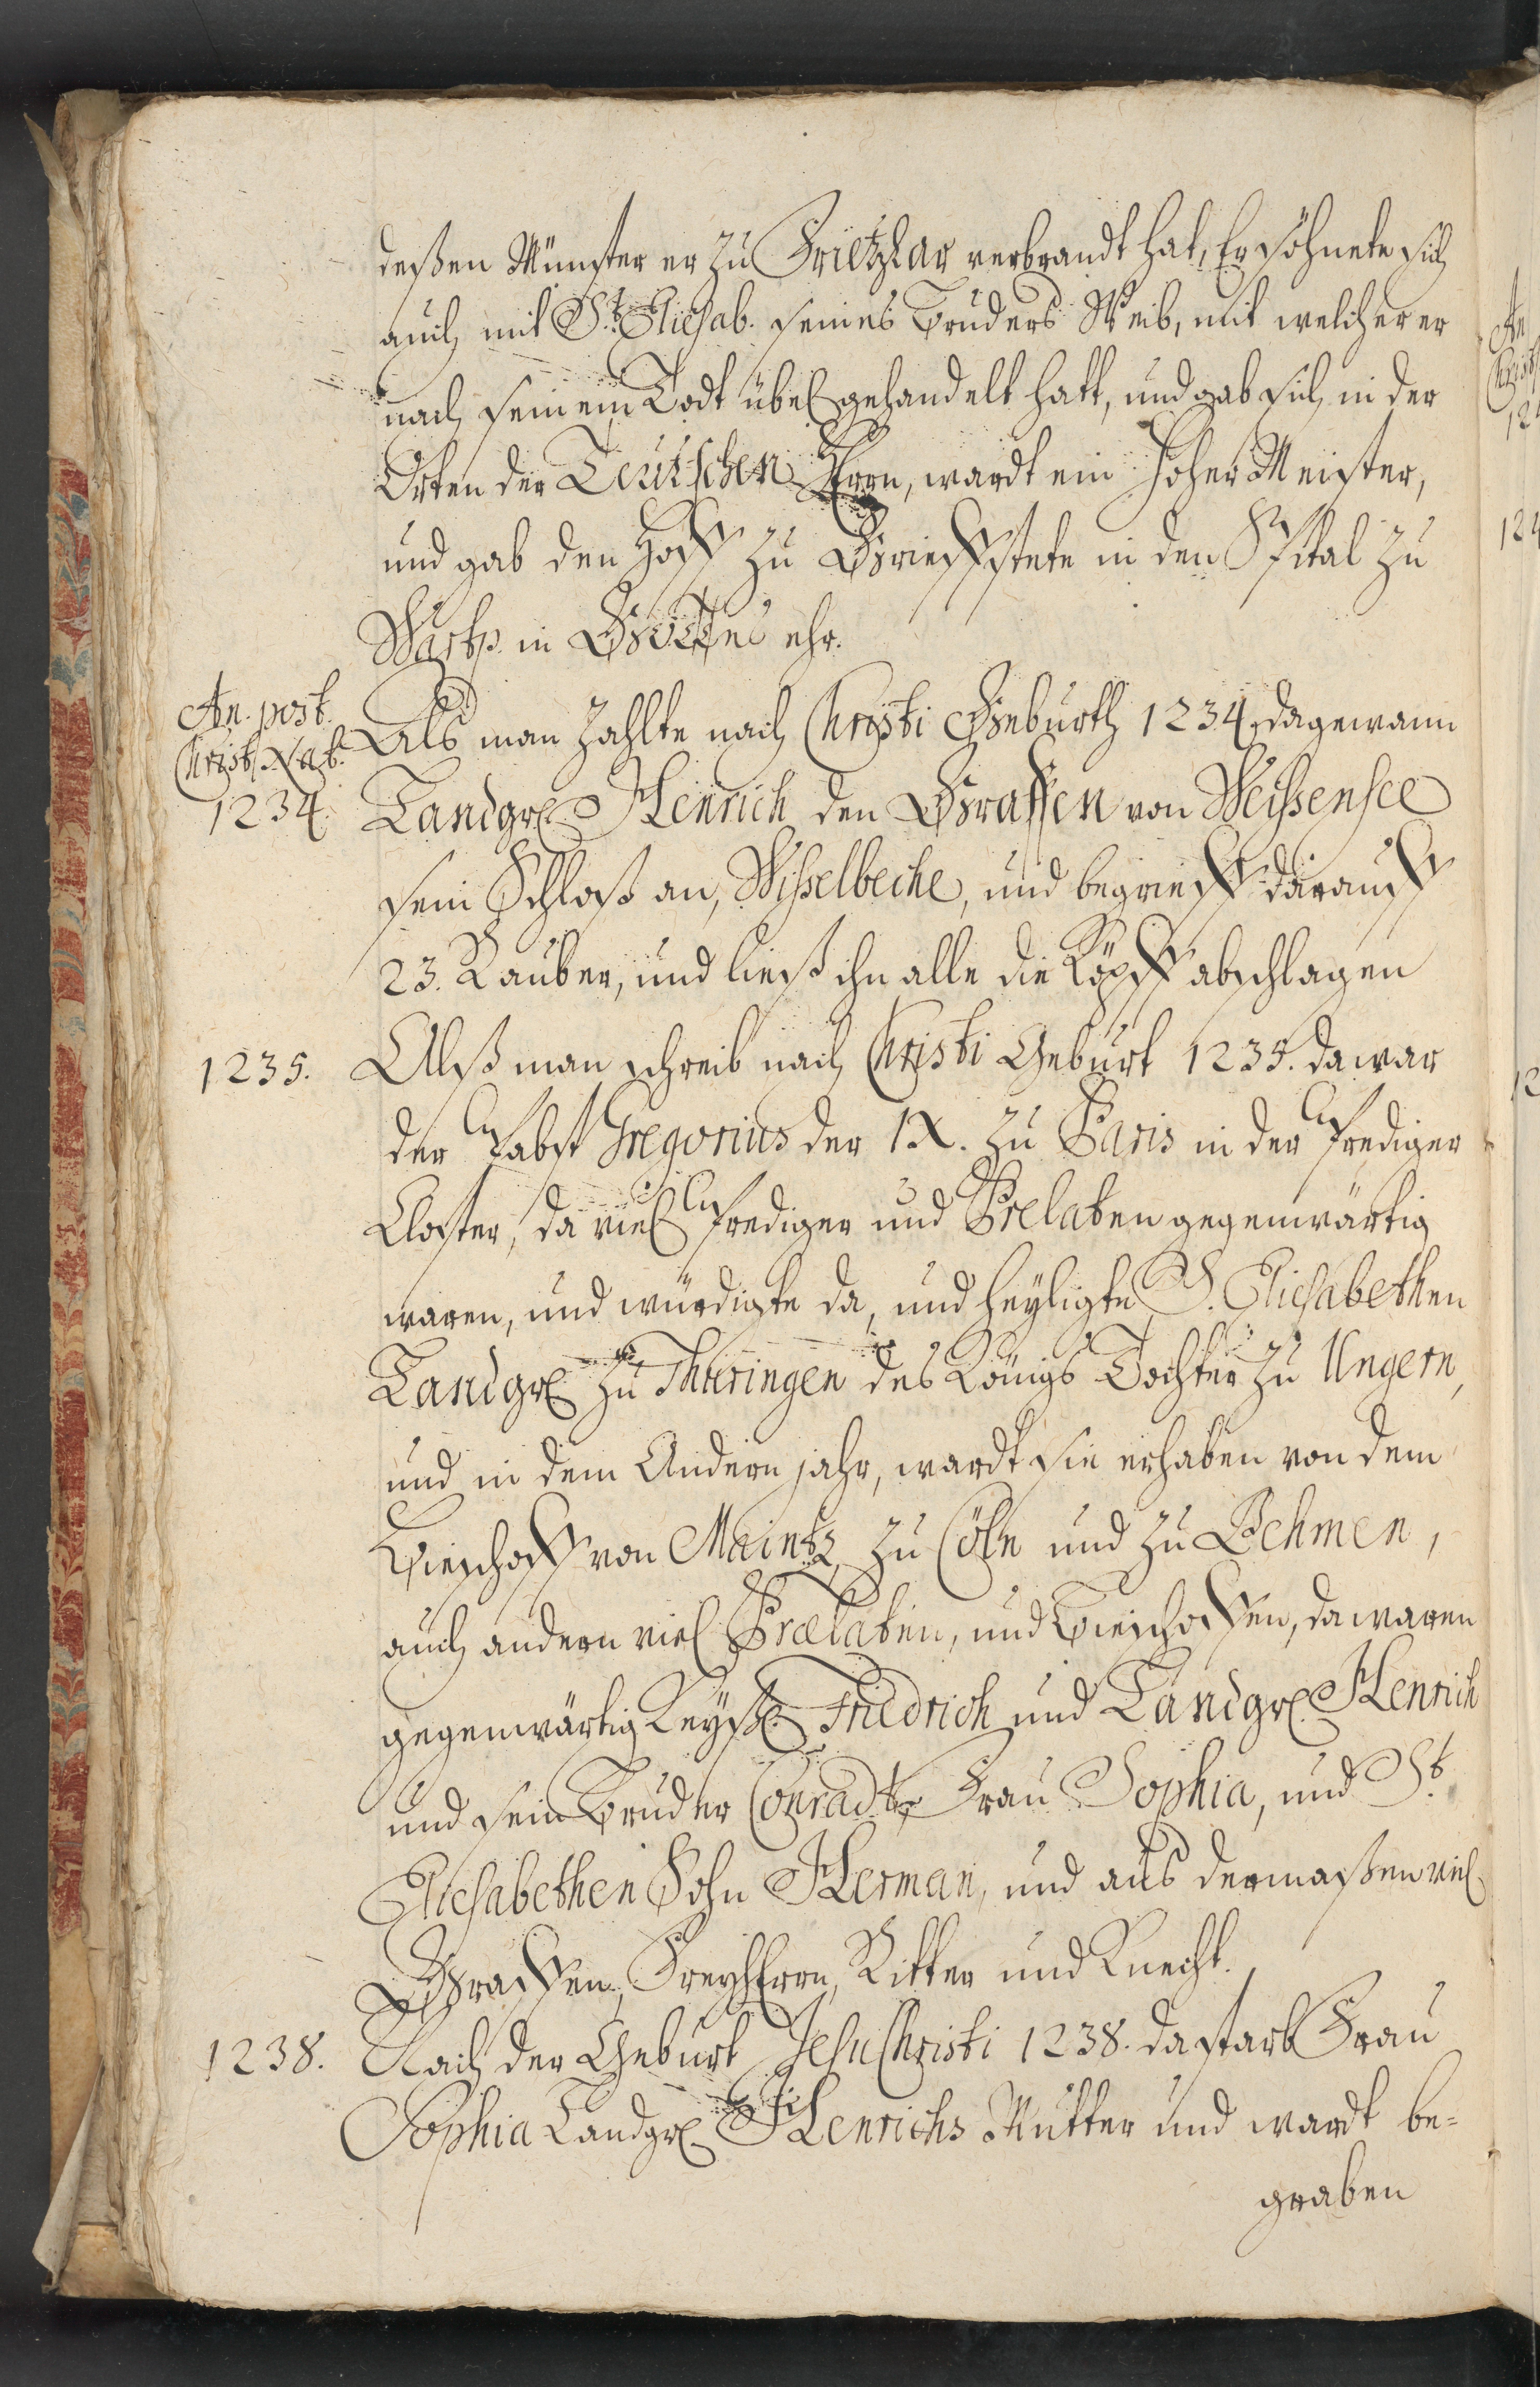 deßen Münster er zu Frietzlar verbrandt hat, Er söhnete sich
auch mit St. Eliesab. seines Bruders Weib, mit welcher er
nach seinem Todt übel gehandelt hatt, und gab sich in der
Orten der Teutschen Herrn, wardt ein Hoher Meister,
und gab den Hoff zu Grieffstete in den Spital zu
in Gottes ehr.
An. post.
Christ. Nat.
1234.
Als man zahlte nach Christi Geburth 1234. da gewann
Landgr. Henrich den Graffen von Weissensee
sein Schloß an, Wisselbeche, und begrieff darauff
23. Rauber, und ließ ihn alle die Köpff abschlagen
1235.
Alß man schreib nach Christi Geburt 1235. da war
der Pabst Gregorius der IX. zu Paris in der Prediger
Closter, da viel Prediger und Prelaten gegenwärtig
waren, und würdigte da, und heyligte S. Eliesabethen
Landgr. zu Thüringen des Königs Tochter zu Ungern,
und in dem Andern jahr, wardt sie erhaben von dem
Bieschoff von Maintz, zu Cöln und zu Behmen,
auch andern viel Prælaten, und Bieschoffen, da waren
gegenwärtig Keyser Friedrich und Landgr. Henrich
und sein Bruder Conradt, Frau Sophia, und St.
Eliesabethen Sohn Herman, und aus dermaßen viel
Graffen, Freyherrn, Ritter und Knecht.
1238.
Nach der Geburt Jesu Christi 1238. da starb Frau
Sophia Landgr. Henrichs Mutter und wardt be-
graben